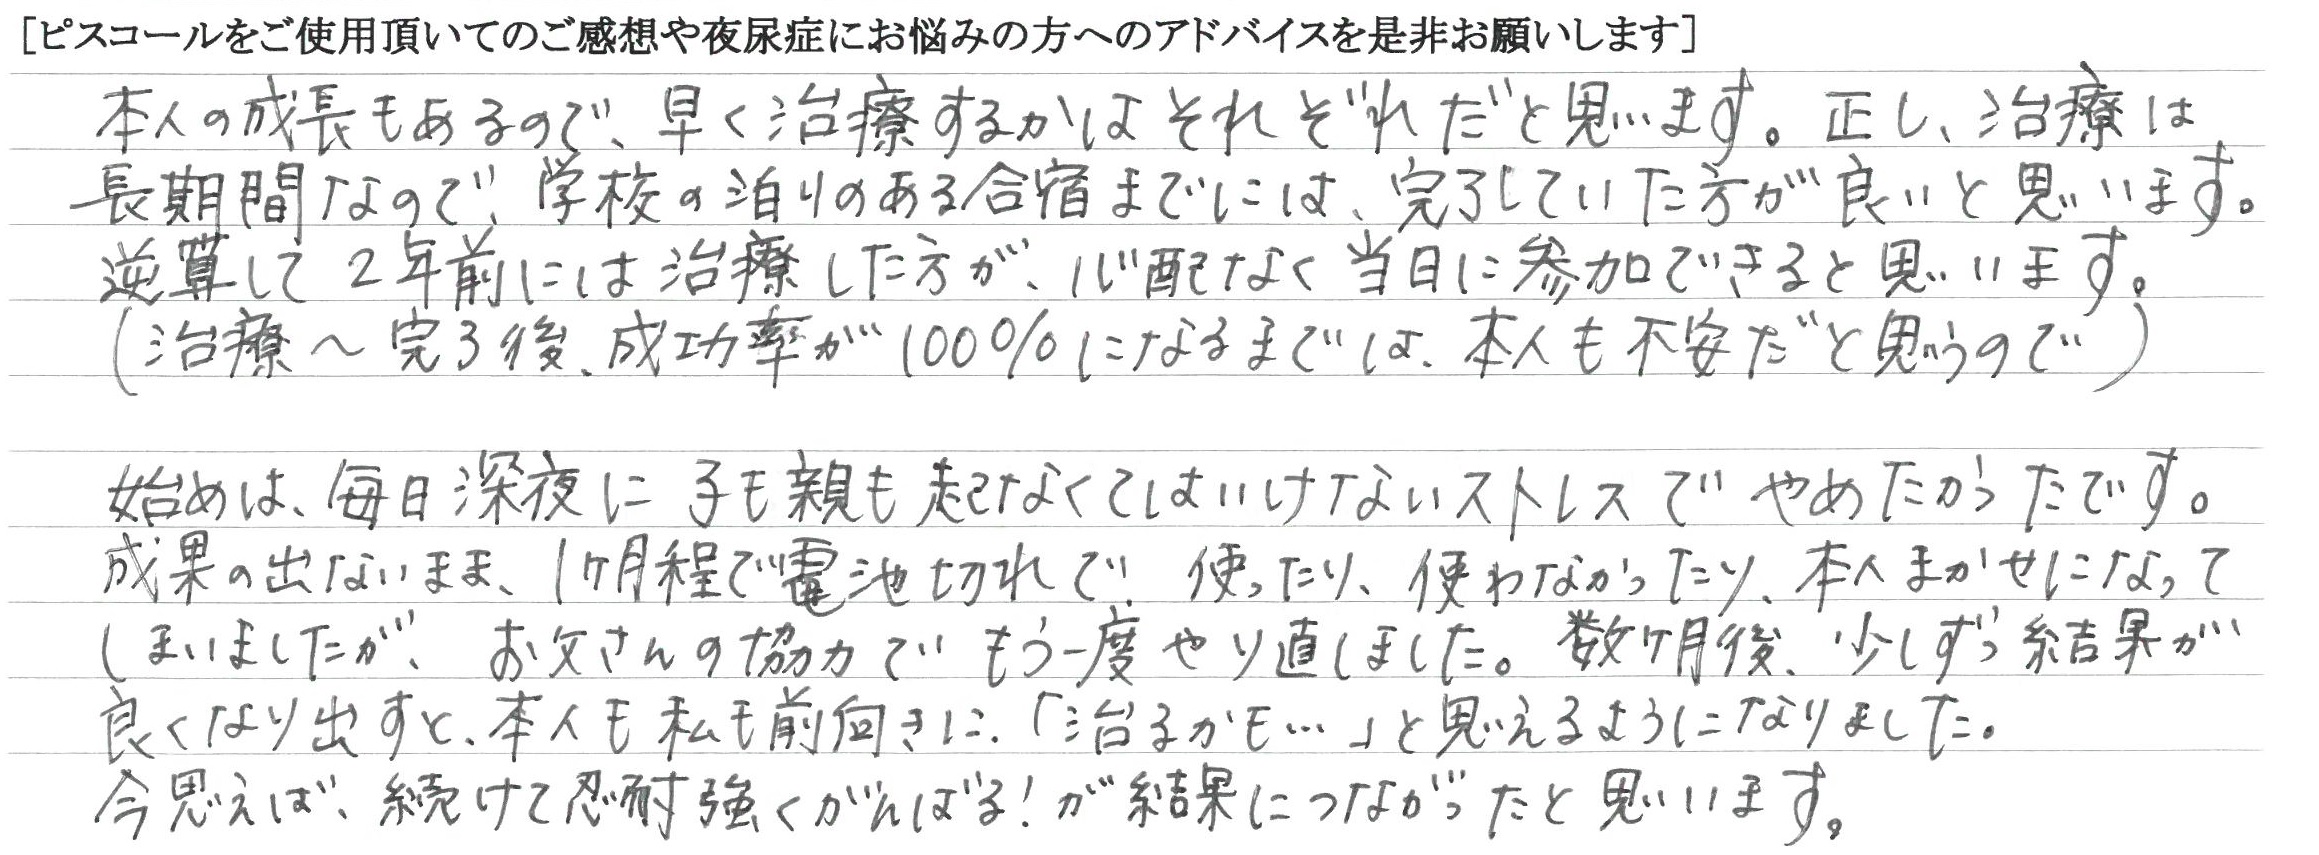 [ピスコールをご使用頂いてのご感想や夜尿症にお悩みの方へのアドバイスを是非お願いします]
本人の成長もあるので、早く治療するかはそれぞれだと思います。正し、治療は
長期間なので、学校の泊りのある合宿までには、完了していた方が良いと思います。
逆算して2年前には治療した方が、心配なく当日に参加できると思います。
(治療〜完了後、成功率が100%になるまでは、本人も不安だと思うので)
始めは、毎日深夜に子も親も起きなくてはいけないストレスでやめたかったです。
成果の出ないまま、1ヶ月程で電池切れで、使ったり、使わなかったり、本人まかせになって
しまいましたが、お父さんの協力でもう一度やり直しました。数ヶ月後、少しずつ結果が
良くなり出すと、本人も私も前向きに、「治るかも…」と思えるようになりました。
今思えば、続けて忍耐強くがんばる!が結果につながったと思います。